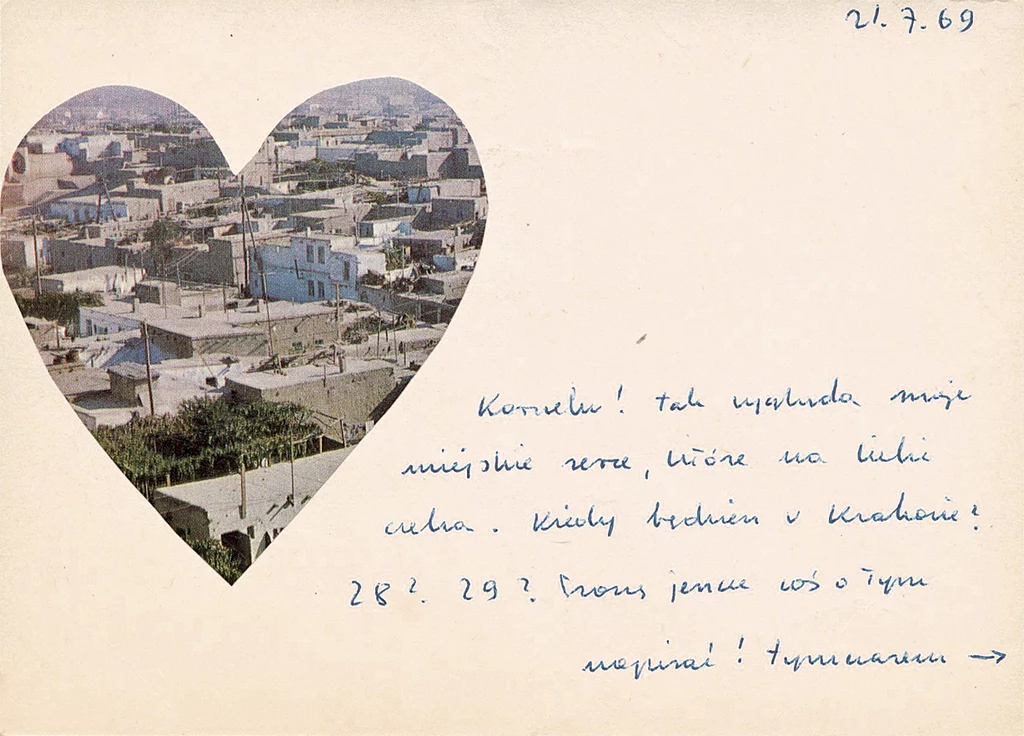 21.7.69
Kornelu! tak wygląda moje
miejskie serce, które na ciebie
czeka. Kiedy będziesz w Krakowie?
28? 29? Proszę jeszcze coś o tym
napisać! tymczasem →